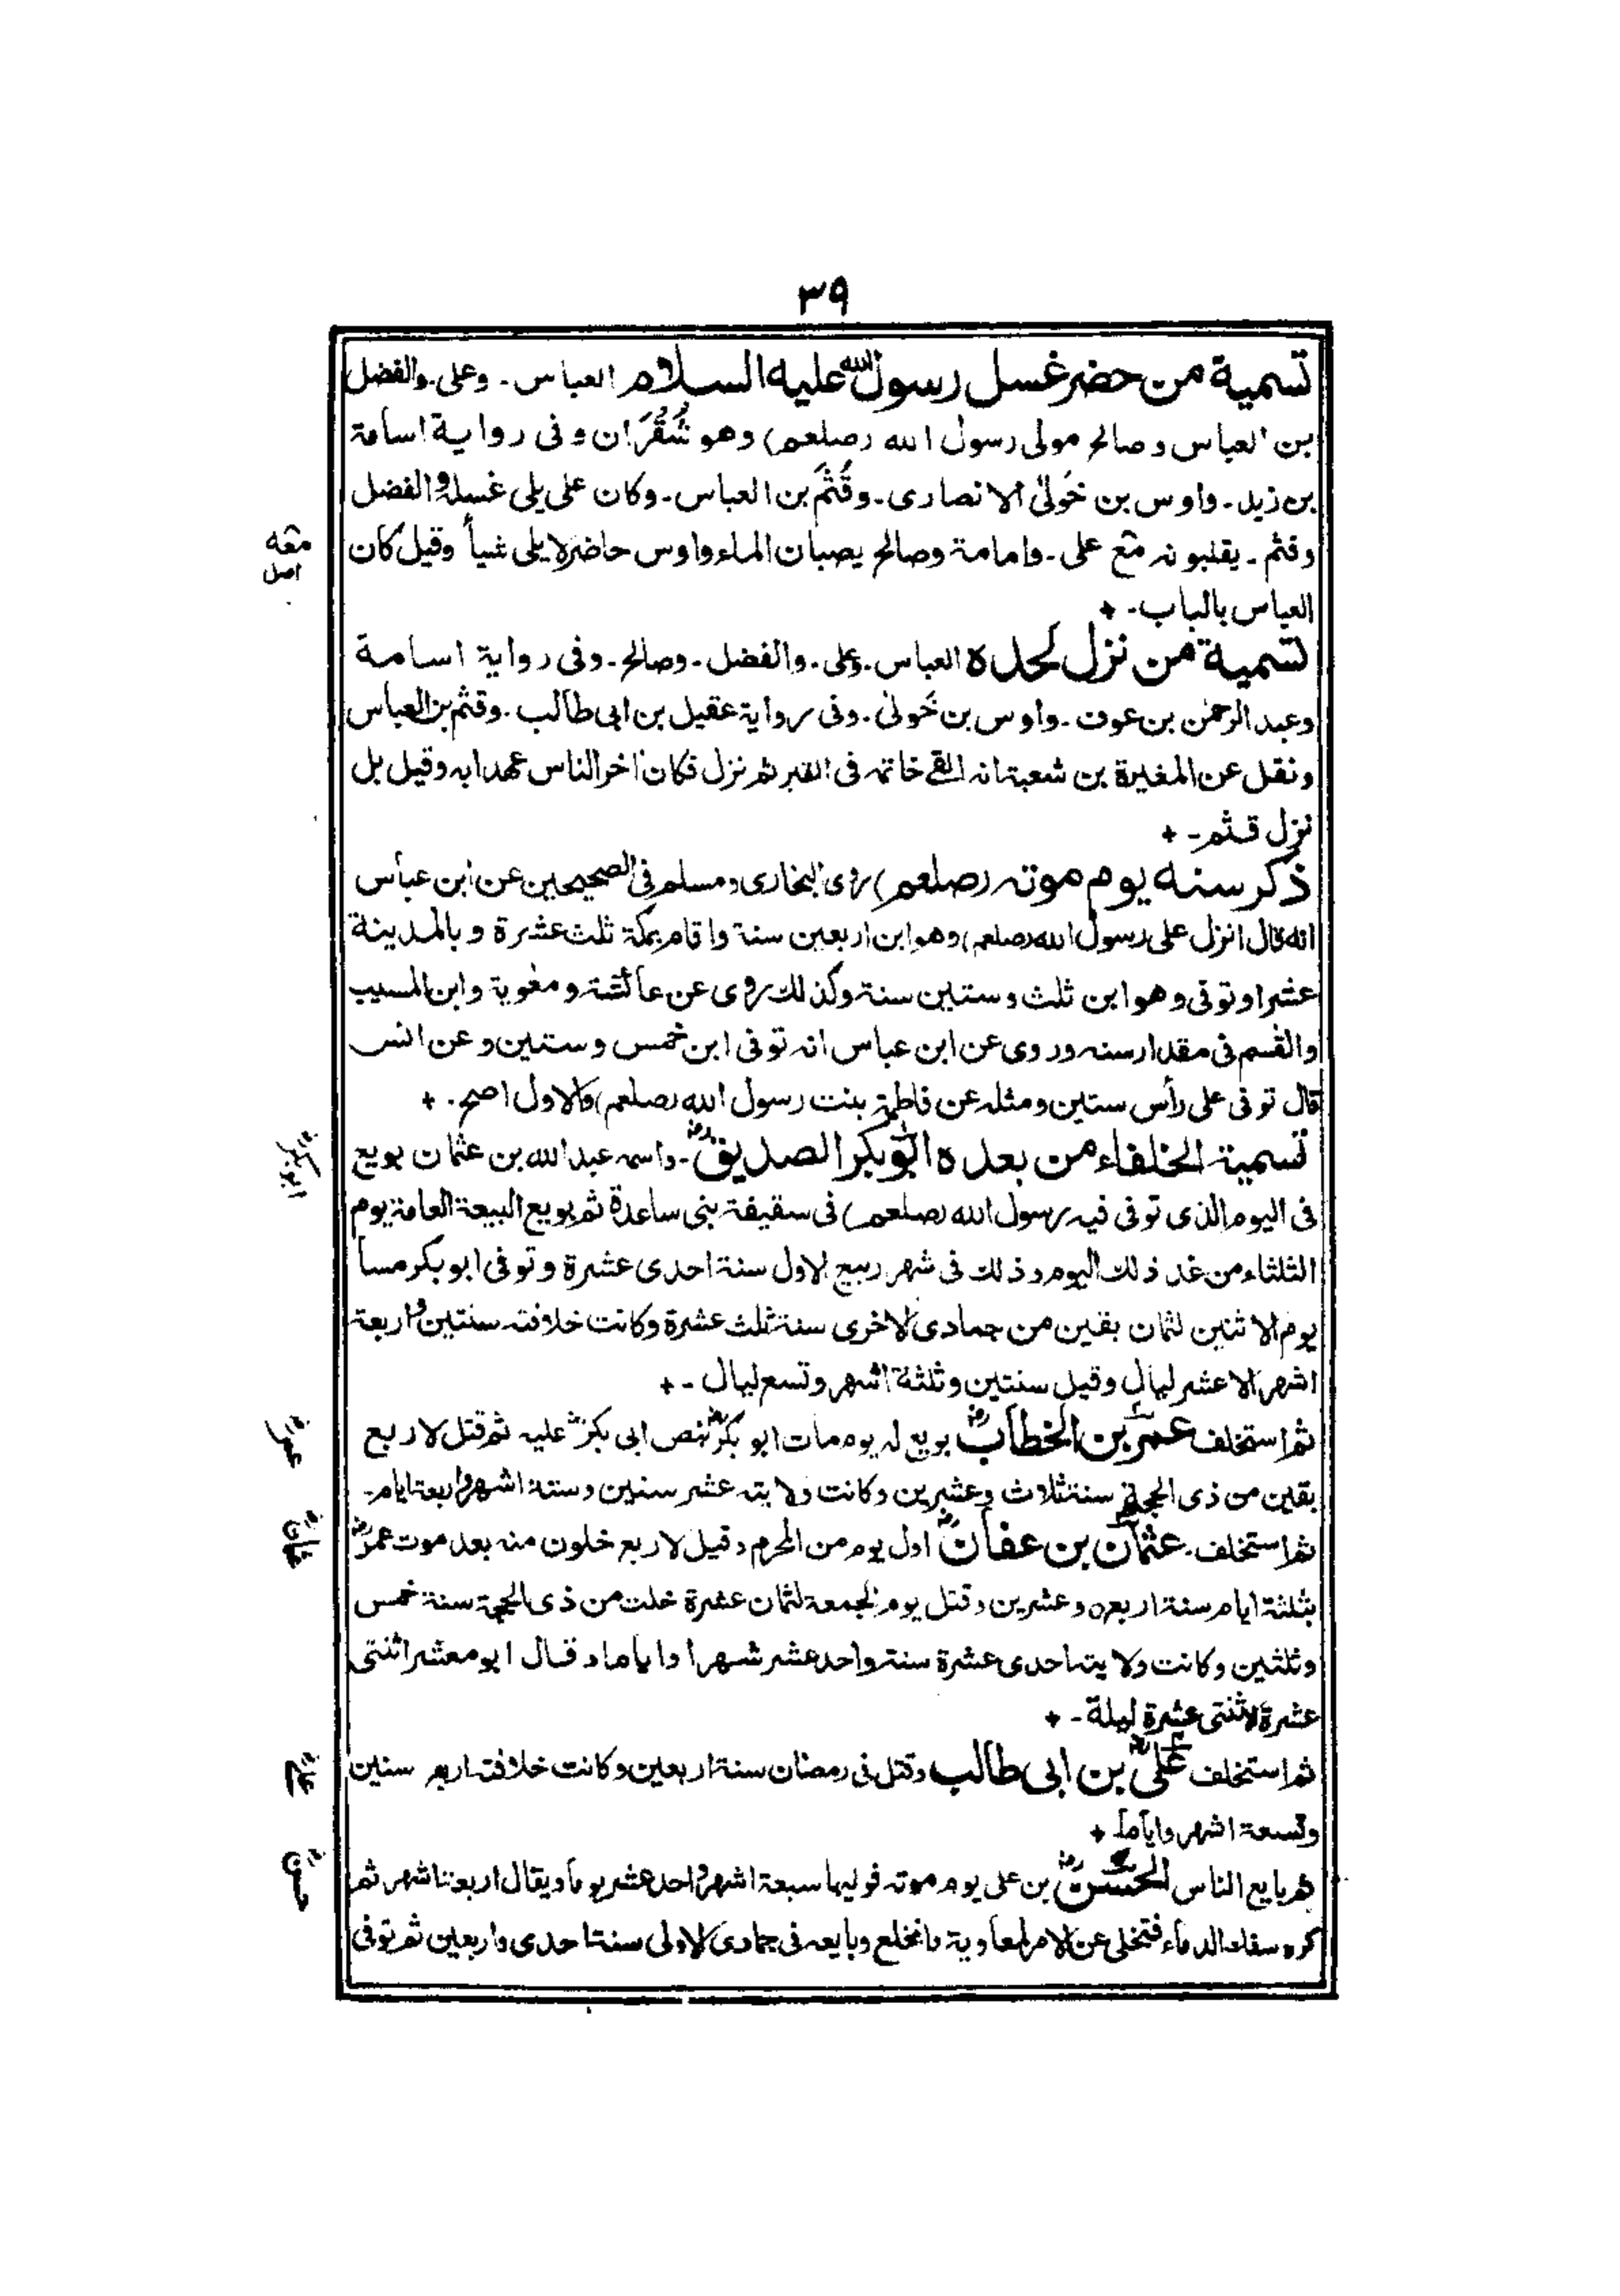 ٣٩
تسمية من حضر غسل رسول الله عليه السلام العباس۔ وعلى۔ والفضل
بن العباس وصالح مولى رسول الله (صلعم) وهو شُقْرَان وفى رواية اسامة
بن زيد۔ واوس بن خَولىٰ الانصارى۔ وقُثَم بن العباس۔ وكان على يلى غسله والفضل
وقثم۔ يقلبونه مع على۔ وامامة وصالح يصبان الماء واوس حاضر لا يلى شيأ وقيل كان
معه
اصل
العباس بالباب۔
تسمية من نزل لحده العباس۔ وعلى۔ والفضل۔ وصالح۔ وفى رواية اسامة
وعبد الرحمٰن بن عوف۔ واوس بن خَولىٰ۔ وفى رواية عقيل بن ابى طالب۔ وقثم بن العباس
ونقل عن المغيرة بن شعبة انه القے خاتمه فى القبر ثم نزل فكان اٰخر الناس عهدا به وقيل بل
نزل قثم۔
ذكر سنه يوم موته (صلعم) روى البخارى ومسلم فى الصحيحين عن ابن عباس
انه قال انزل على رسول الله (صلعم) وهو ابن اربعين سنة واقام بمكة ثلث عشرة وبالمدينة
عشرا وتوفى وهو ابن ثلث وستين سنة وكذلك روى عن عائشة ومعٰوية وابن المسيب
والقسم فى مقدار سنه وروى عن ابن عباس انه توفى ابن خمس وستين وعن انس
قال توفى على رأس ستين ومثله عن فاطمة بنت رسول الله (صلعم) والاول اصح۔
تسمية الخلفاء من بعده ابو بكر الصديق رض۔ واسمه عبد الله بن عثمان بويع
ابوبكر رض
فى اليوم الذى توفى فيه رسول الله (صلعم) فى سقيفة بنى ساعدة ثم بويع البيعة العامة يوم
الثلثاء من غد ذلك اليوم وذلك فى شهر ربيع الاول سنة احدى عشرة وتوفى ابو بكر مسأ
يوم الاثنين لثمان بقين من جمادى الاخرى سنة ثلث عشرة وكانت خلافته سنتين واربعة
اشهر الا عشر ليال وقيل سنتين وثلثة اشهر وتسع ليال۔
ثم استخلف عمر بن الخطاب رض بويع له يوم مات ابو بكر رض بنص ابى بكر رض عليه ثم قتل لاربع
عمر رض
بقين من ذى الحجة سنة ثلاث وعشرين وكانت ولايته عشر سنين وستة اشهر واربعة ايام۔
ثم استخلف۔ عثمان بن عفان رض اول يوم من المحرم وقيل لاربع خلون منه بعد موت عمر رض
عثمان رض
بثلثة ايام سنة اربعه وعشرين وقتل يوم الجمعة لثمان عشرة خلت من ذى الحجة سنة خمس
وثلثين وكانت ولايته احدى عشرة سنة واحد عشر شهرا واياما وقال ابو معشر اثنتى
عشرة الا ثنتى عشرة ليلة۔
ثم استخلف على رض بن ابى طالب وقتل فى رمضان سنة اربعين وكانت خلافته اربع سنين
على رض
وتسعة اشهر واياما
ثم بايع الناس الحسن رض بن على يوم موته فوليها سبعة اشهر واحد عشر يوما ويقال اربعة اشهر ثم
حسن رض
كره سفك الدماء فتخلى عن الامر لمعاوية وانخلع وبايعه فى جمادى الاولى سنة احدى واربعين ثم توفى